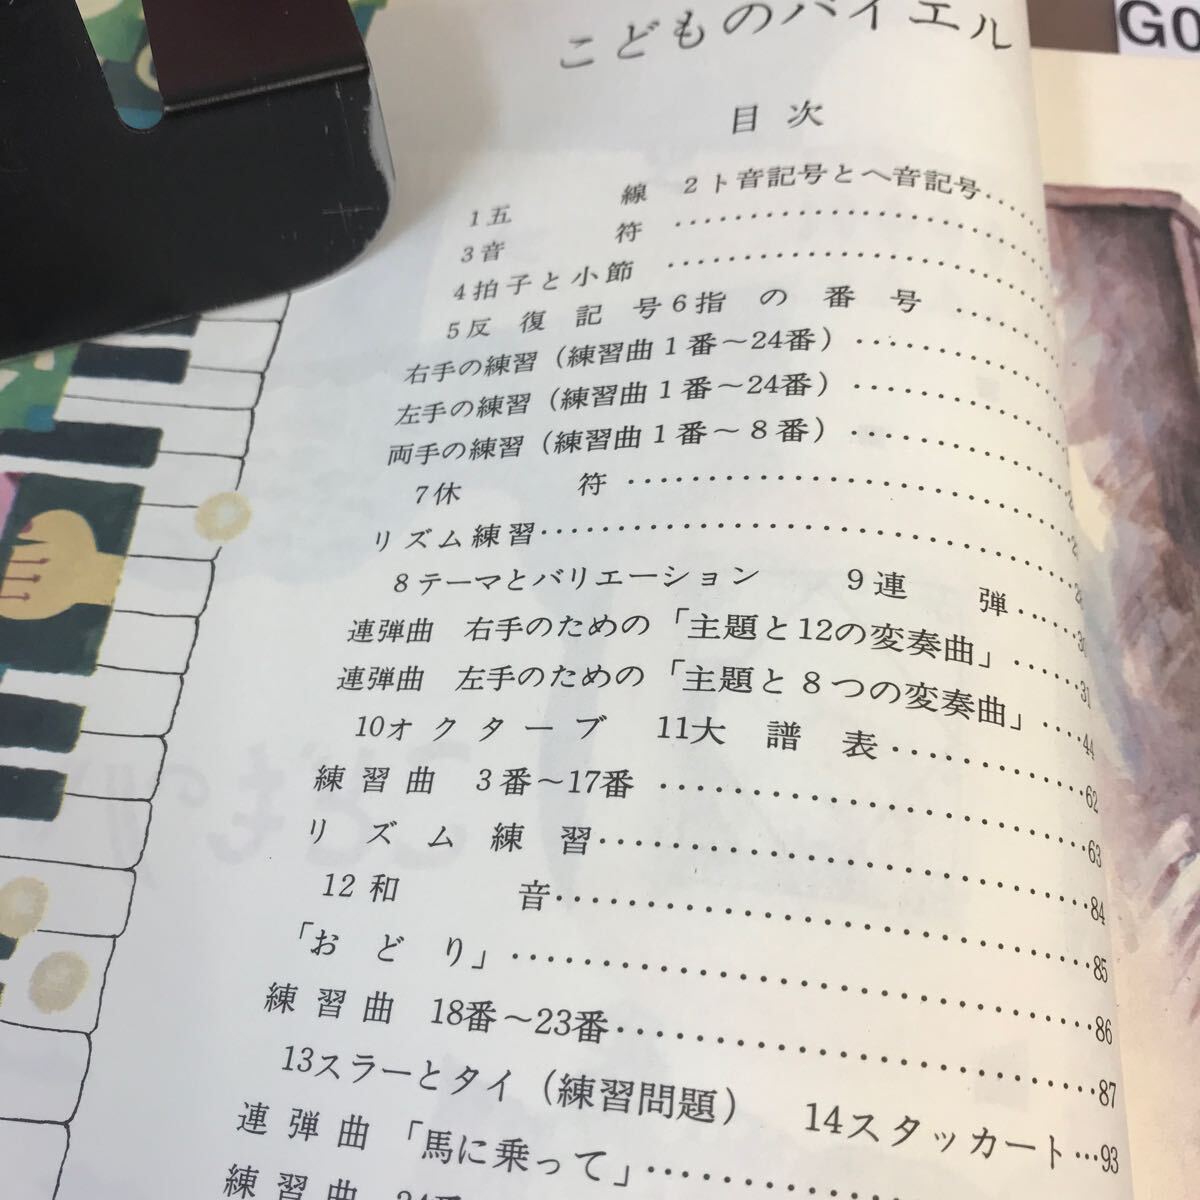 G0
こどものバイエル
目次
1五線 2ト音記号とヘ音記号……
3音符……
4拍子と小節……
5反復記号6指の番号……
右手の練習(練習曲1番〜24番)……
左手の練習(練習曲1番〜24番)……
両手の練習(練習曲1番〜8番)……
7休符……
リズム練習……
8テーマとバリエーション 9連弾……30
連弾曲 右手のための「主題と12の変奏曲」……31
連弾曲 左手のための「主題と8つの変奏曲」…44
10オクターブ 11大譜表……62
練習曲 3番〜17番……63
リズム練習……84
12和音……85
「おどり」……86
練習曲 18番〜23番……87
13スラーとタイ(練習問題) 14スタッカート…93
連弾曲「馬に乗って」……
練習曲